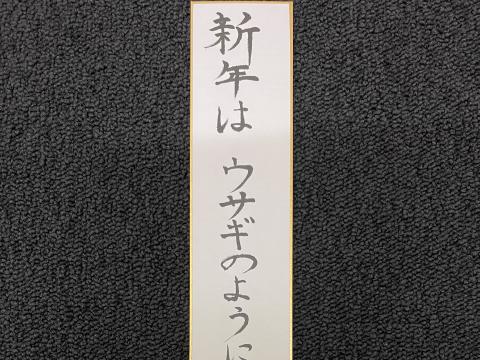 新年は ウサギのように